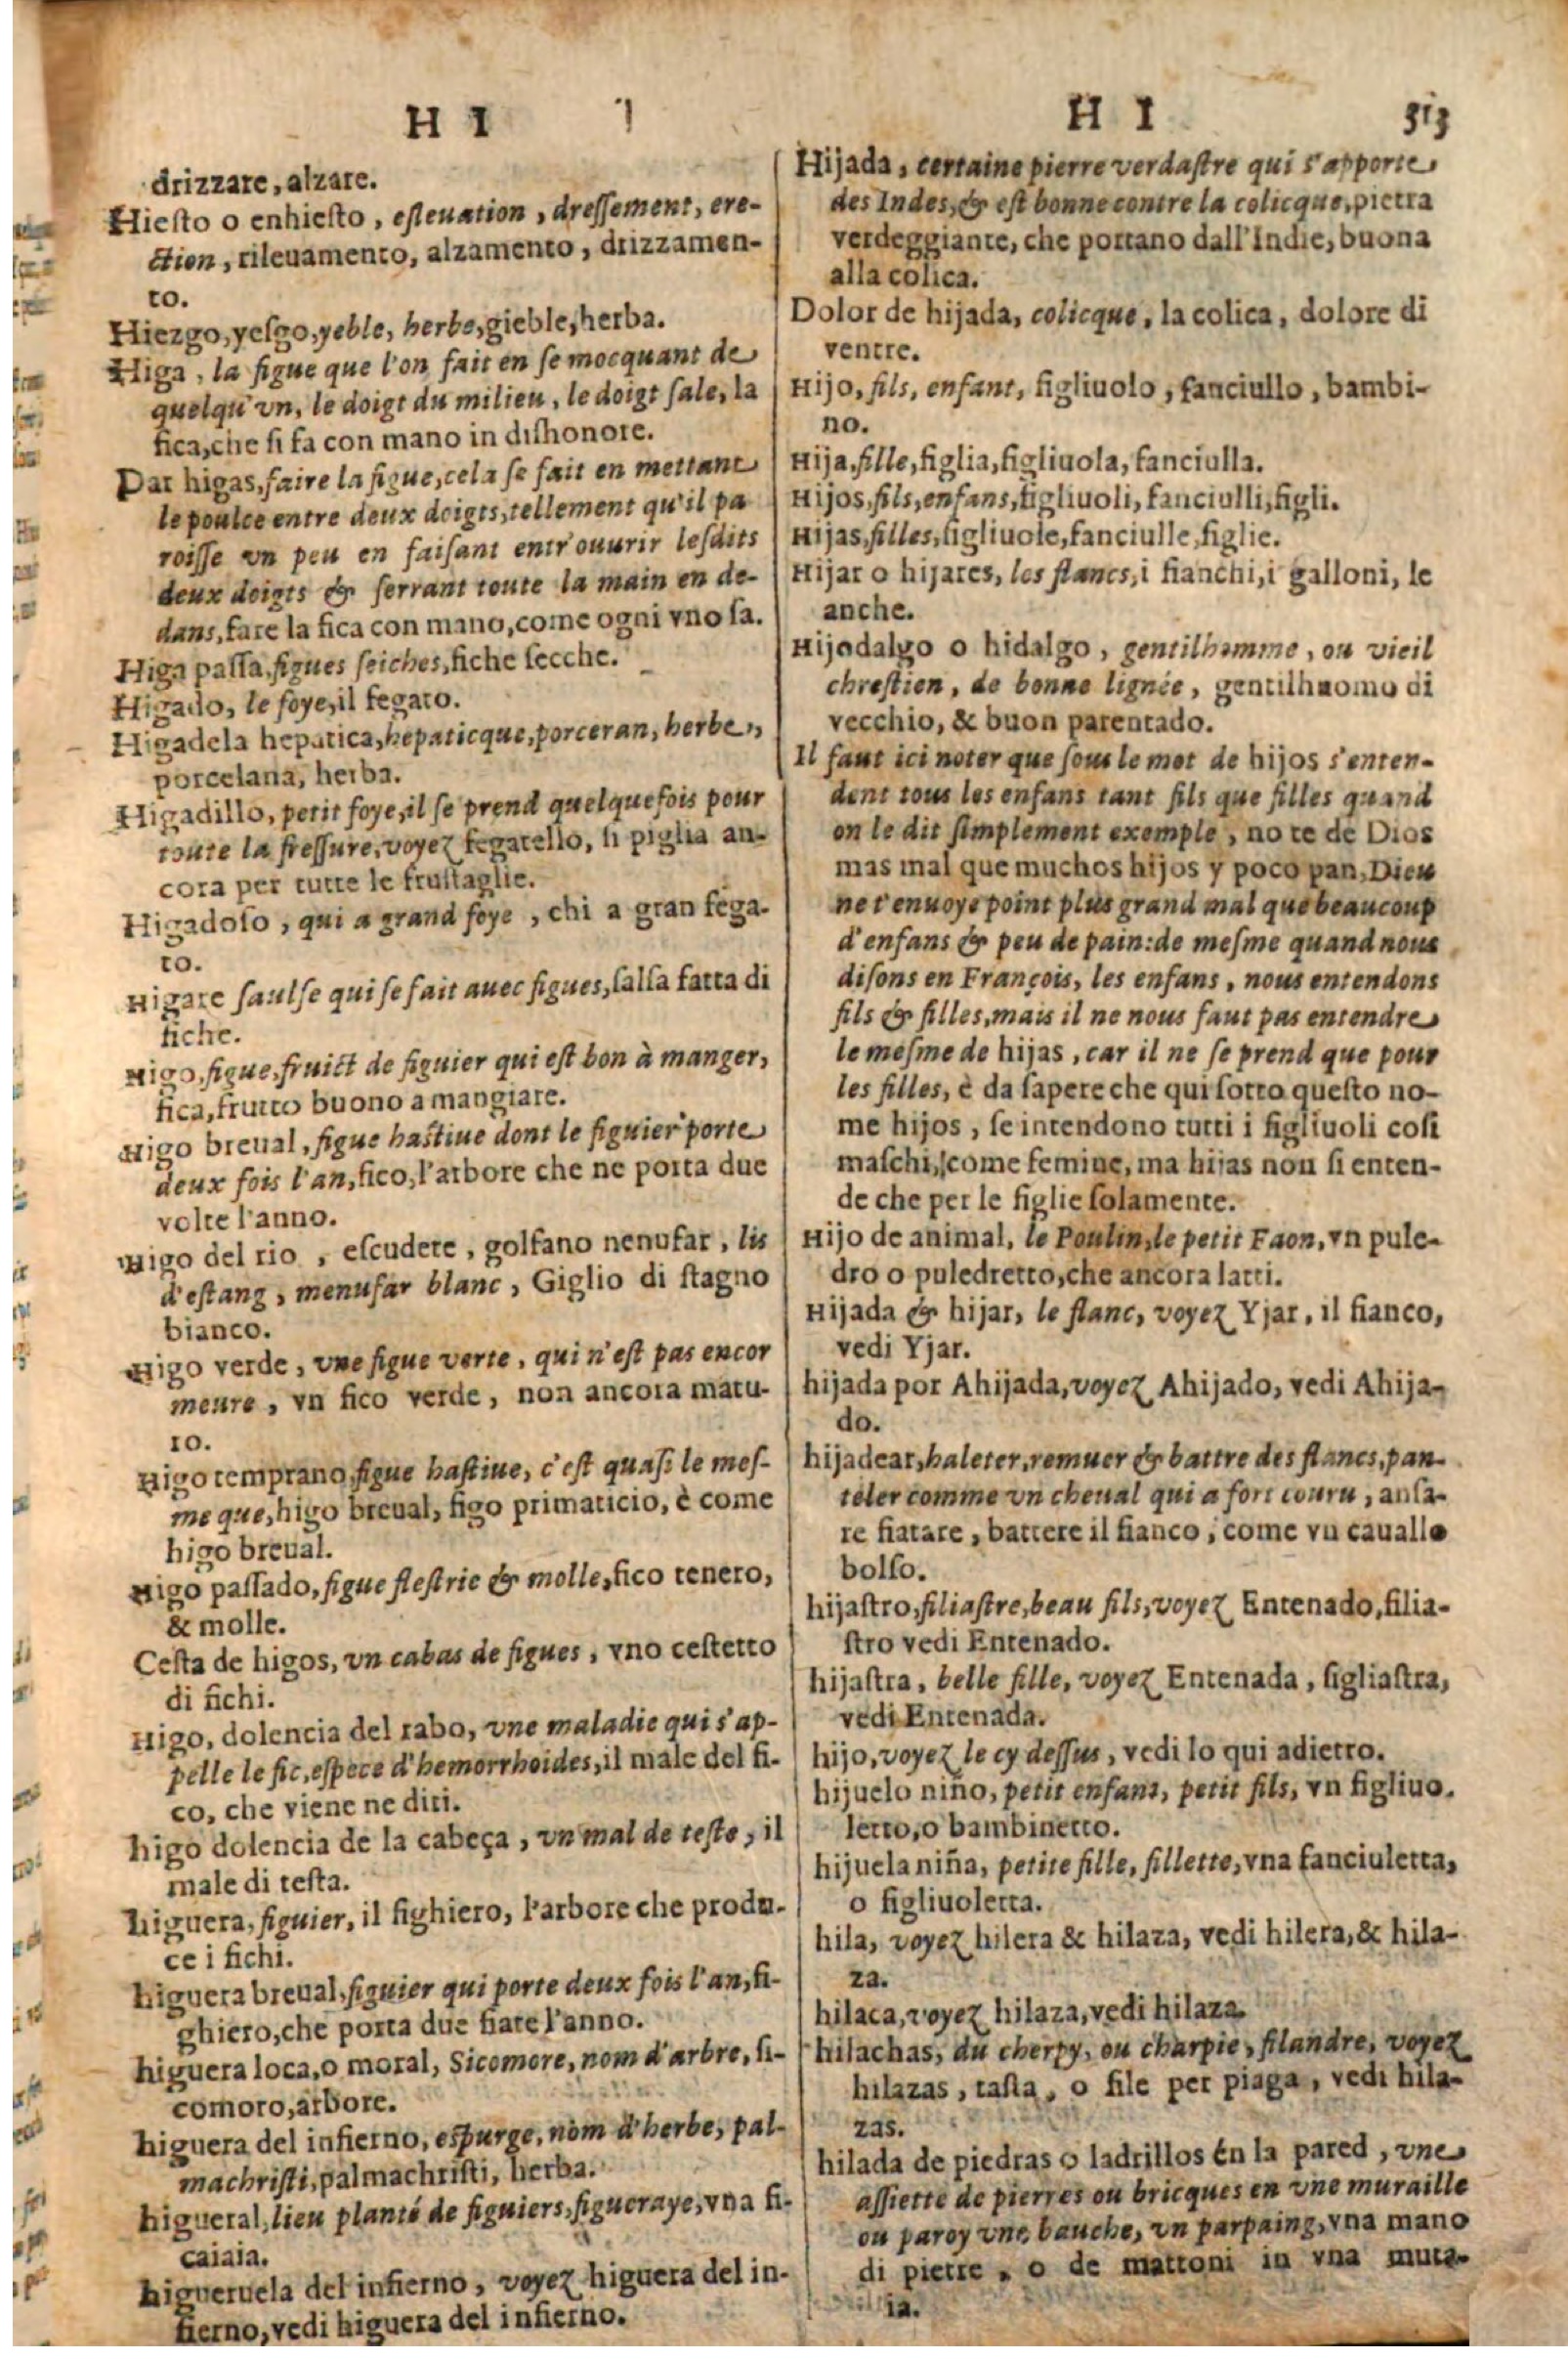 H I
drizzare, alzare.
Hiesto o enhiesto, esleuation, dressement, ere-
ction, rileuamento, alzamento, drizzamen-
to.
Hiezgo, yesgo, yeble, herbe, gieble, herba.
Higa, la figue que l'on fait en se mocquant de
quelqu'vn, le doigt du milieu, le doigt sale, la
fica, che si fa con mano in dishonore.
Dar higas, faire la figue, cela se fait en mettant
le poulce entre deux doigts, tellement qu'il pa
roisse vn peu en faisant entr'ouurir lesdits
deux doigts & serrant toute la main en de-
dans, fare la fica con mano, come ogni vno sa.
Higa passa, figues seiches, fiche secche.
Higado, le foye, il fegato.
Higadela hepatica, hepaticque, porceran, herbe,
porcelana, herba.
Higadillo, petit foye, il se prend quelquefois pour
toute la fressure, voyez fegatello, si piglia an-
cora per tutte le frustaglie.
Higadoso, qui a grand foye, chi a gran fega-
to.
Higate saulse qui se fait auec figues, salsa fatta di
fiche.
Higo, figue, fruict de figuier qui est bon à manger,
fica, frutto buono a mangiare.
Higo breual, figue hastiue dont le figuier porte
deux fois l'an, fico, l'arbore che ne porta due
volte l'anno.
Higo del rio, escudete, golfano nenufar, lis
d'estang, menufar blanc, Giglio di stagno
bianco.
Higo verde, vne figue verte, qui n'est pas encor
meure, vn fico verde, non ancora matu-
ro.
Higo temprano, figue hastiue, c'est quasi le mes-
me que, higo breual, figo primaticio, è come
higo breual.
Higo passado, figue flestrie & molle, fico tenero,
& molle.
Cesta de higos, vn cabas de figues, vno cestetto
di fichi.
Higo, dolencia del rabo, vne maladie qui s'ap-
pelle le fic, espece d'hemorrhoides, il male del fi-
co, che viene ne diti.
higo dolencia de la cabeça, vn mal de teste, il
male di testa.
higuera, figuier, il fighiero, l'arbore che produ-
ce i fichi.
higuera breual, figuier qui porte deux fois l'an, fi-
ghiero, che porta due fiate l'anno.
higuera loca, o moral, Sicomore, nom d'arbre, si-
comoro, arbore.
higuera del infierno, espurge, nom d'herbe, pal-
machristi, palmachristi, herba.
higueral, lieu planté de figuiers, figueraye, vna fi-
caiaia.
higueruela del infierno, voyez higuera del in-
fierno, vedi higuera del infierno.
H I 313
Hijada, certaine pierre verdastre qui s'apporte
des Indes, & est bonne contre la colicque, pietra
verdeggiante, che portano dall'Indie, buona
alla colica.
Dolor de hijada, colicque, la colica, dolore di
ventre.
Hijo, fils, enfant, figliuolo, fanciullo, bambi-
no.
Hija, fille, figlia, figliuola, fanciulla.
Hijos, fils, enfans, figliuoli, fanciulli, figli.
Hijas, filles, figliuole, fanciulle, figlie.
Hijar o hijares, les flancs, i fianchi, i galloni, le
anche.
Hijodalgo o hidalgo, gentilhomme, ou vieil
chrestien, de bonne lignée, gentilhuomo di
vecchio, & buon parentado.
Il faut ici noter que sous le mot de hijos s'enten-
dent tous les enfans tant fils que filles quand
on le dit simplement exemple, no te de Dios
mas mal que muchos hijos y poco pan, Dieu
ne t'enuoye point plus grand mal que beaucoup
d'enfans & peu de pain: de mesme quand nous
disons en François, les enfans, nous entendons
fils & filles, mais il ne nous faut pas entendre
le mesme de hijas, car il ne se prend que pour
les filles, è da sapere che qui sotto questo no-
me hijos, se intendono tutti i figliuoli cosi
maschi, come femine, ma hijas non si enten-
de che per le figlie solamente.
Hijo de animal, le Poulin, le petit Faon, vn pule-
dro o puledretto, che ancora latti.
Hijada & hijar, le flanc, voyez Yjar, il fianco,
vedi Yjar.
hijada por Ahijada, voyez Ahijado, vedi Ahija-
do.
hijadear, haleter, remuer & battre des flancs, pan-
teler comme vn cheual qui a fort couru, ansa-
re fiatare, battere il fianco, come vn cauallo
bolso.
hijastro, filiastre, beau fils, voyez Entenado, filia-
stro vedi Entenado.
hijastra, belle fille, voyez Entenada, figliastra,
vedi Entenada.
hijo, voyez le cy dessus, vedi lo qui adietro.
hijuelo niño, petit enfant, petit fils, vn figliuo-
letto, o bambinetto.
hijuela niña, petite fille, fillette, vna fanciuletta,
o figliuoletta.
hila, voyez hilera & hilaza, vedi hilera, & hila-
za.
hilaca, voyez hilaza, vedi hilaza.
hilachas, du cherpy, ou charpie, filandre, voyez
hilazas, tasta, o file per piaga, vedi hila-
zas.
hilada de piedras o ladrillos en la pared, vne
assiette de pierres ou bricques en vne muraille
ou paroy vne bauche, vn parpaing, vna mano
di pietre, o de mattoni in vna mura-
ia.